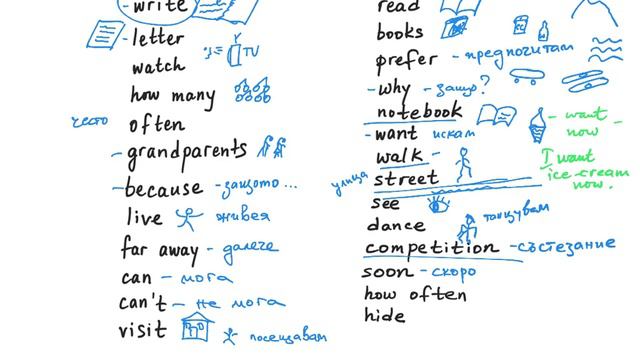 write
letter
watch
TV
how many
често
often
grandparents
because - защото...
live
живея
far away - далече
can - мога
can't - не мога
visit
посещавам
read
books
prefer - предпочитам
why - защо?
notebook
want искам
- want
now -
walk -
I want
ice-cream
now.
улица
street
see
танцувам
dance
competition - състезание
soon - скоро
how often
hide